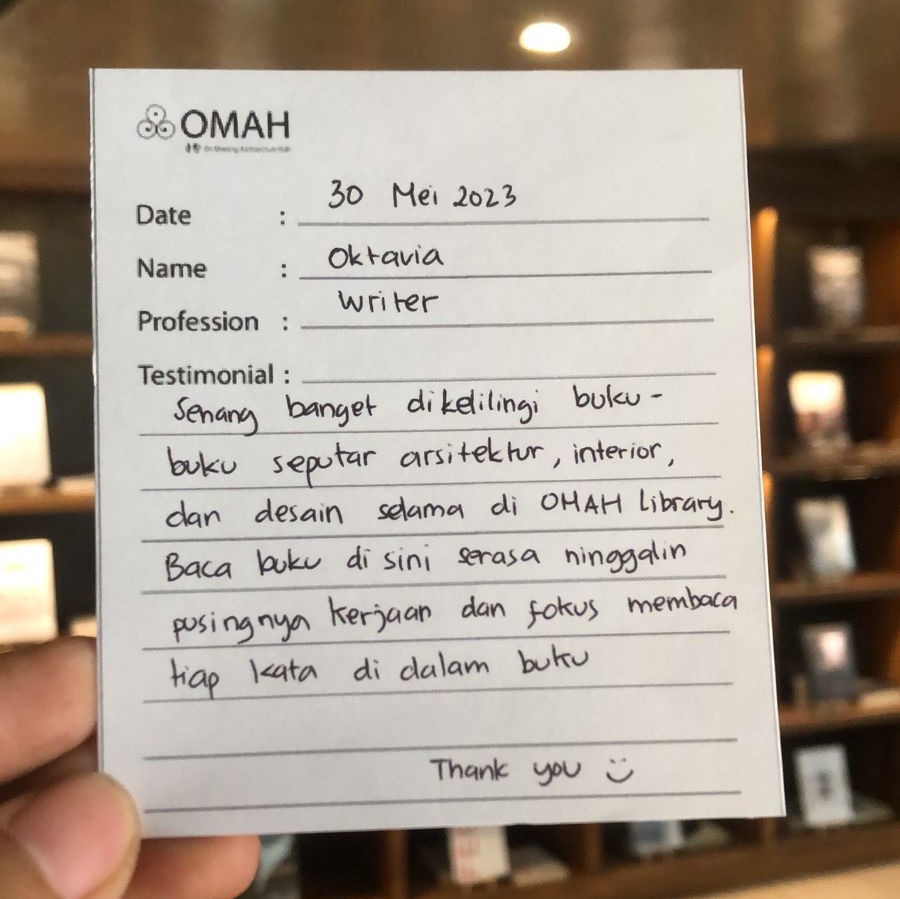 OMAH
On Marking Architecture Hub
Date : 30 Mei 2023
Name : Oktavia
Profession : Writer
Testimonial :
Senang banget dikelilingi buku-
buku seputar arsitektur, interior,
dan desain selama di OMAH Library.
Baca buku di sini serasa ninggalin
pusingnya kerjaan dan fokus membaca
tiap kata di dalam buku
Thank you